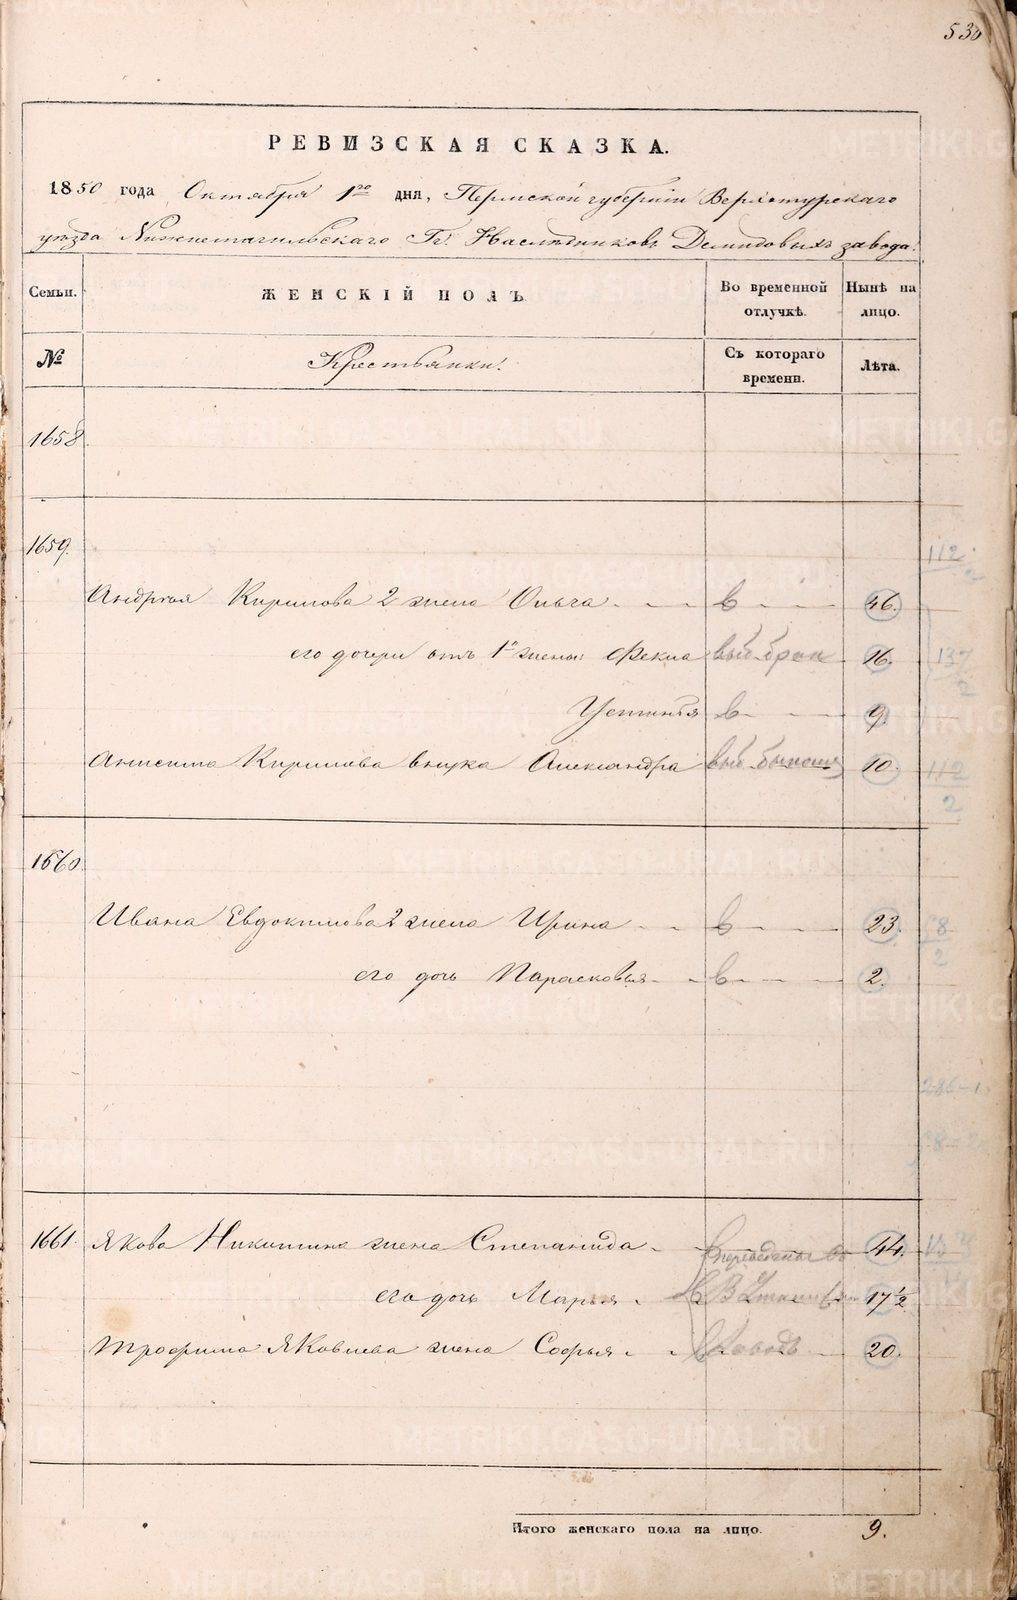 530
РЕВИЗСКАЯ СКАЗКА.
1850 года Октября 1го дня, Пермской губернiи Верхотурскаго
уѣзда Нижнетагильскаго Гг. Наслѣдниковъ Демидовыхъ завода.
Семьи. ЖЕНСКIЙ ПОЛЪ Во временной отлучкѣ. Нынѣ на лицо.
№ Крестьянки. Съ котораго времени. Лѣта.
1658.
1659.
112
Андрея Кирилова 2 жена Ольга в 46.
его дочери отъ 1й жены: Фекла выб. брак 16.
137
2
Устинья в 9.
Анисима Кирилова внука Александра выб. 10.
112
2
1660
Ивана Евдокимова 2 жена Ирина в 23.
2
его дочь Парасковья в 2.
1661. Якова Никитина жена Степанида переведены во 44.
его дочь Марья 17 1/2
Трофима Яковлева жена Софья заводъ 20.
Итого женскаго пола на лицо. 9.
METRIKI.GASO-URAL.RU